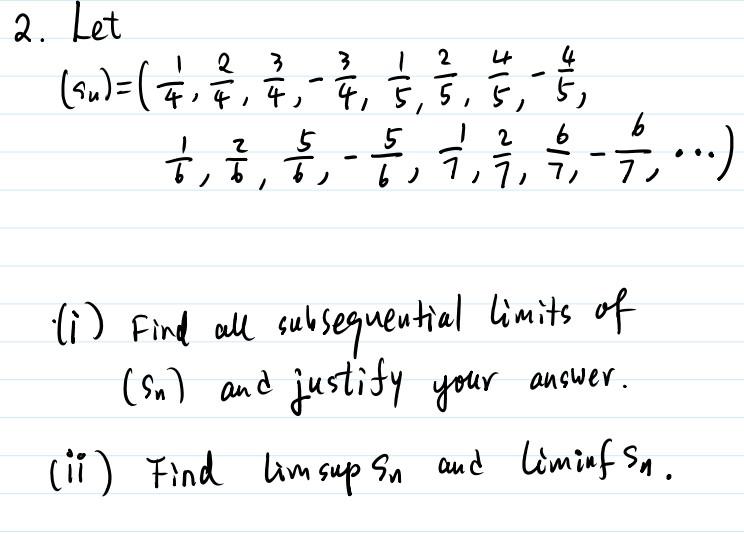 2. Let
(sn)=(1/4, 2/4, 3/4, -3/4, 1/5, 2/5, 4/5, -4/5,
1/6, 2/6, 5/6, -5/6, 1/7, 2/7, 6/7, -6/7, ...)
(i) Find all subsequential limits of
(sn) and justify your answer.
(ii) Find limsup sn and liminf sn.